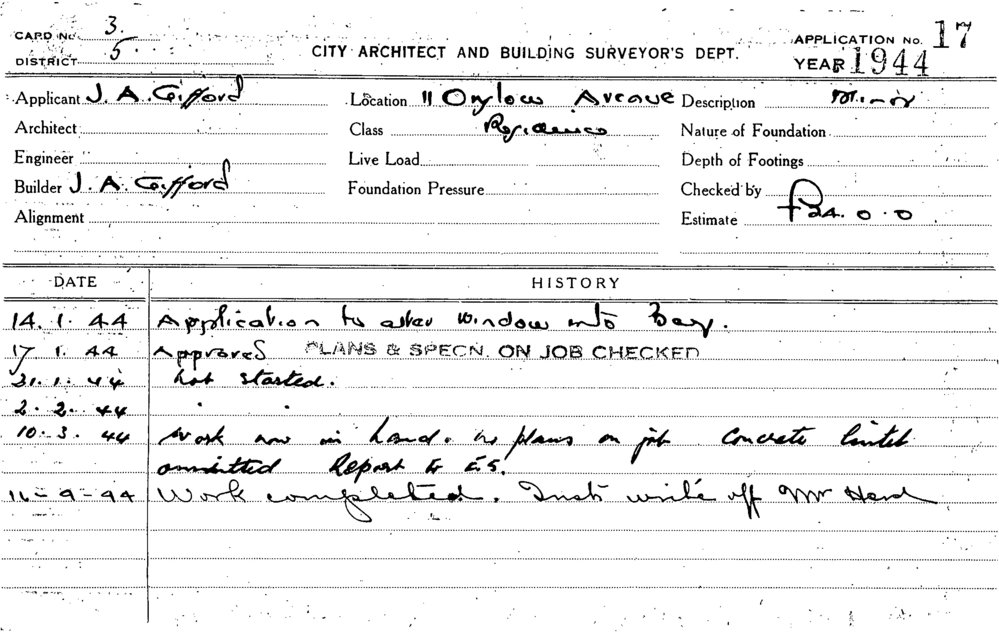 CARD No. 3.
DISTRICT 5.
CITY ARCHITECT AND BUILDING SURVEYOR'S DEPT.
APPLICATION No. 17
YEAR 1944
Applicant J. A. Gifford
Location 11 Onslow Avenue
Description Minor
Architect
Class Residence
Nature of Foundation
Engineer
Live Load
Depth of Footings
Builder J. A. Gifford
Foundation Pressure
Checked by
Alignment
Estimate £24. 0. 0
DATE HISTORY
14. 1. 44 Application to alter window into Bay.
17 1. 44 Approved PLANS & SPECN. ON JOB CHECKED
31. 1. 44 not started.
2. 2. 44 " "
10. 3. 44 Work now in hand. no plans on job Concrete lintel
ommitted Report to E.S.
11-9-44 Work completed. write off Mr